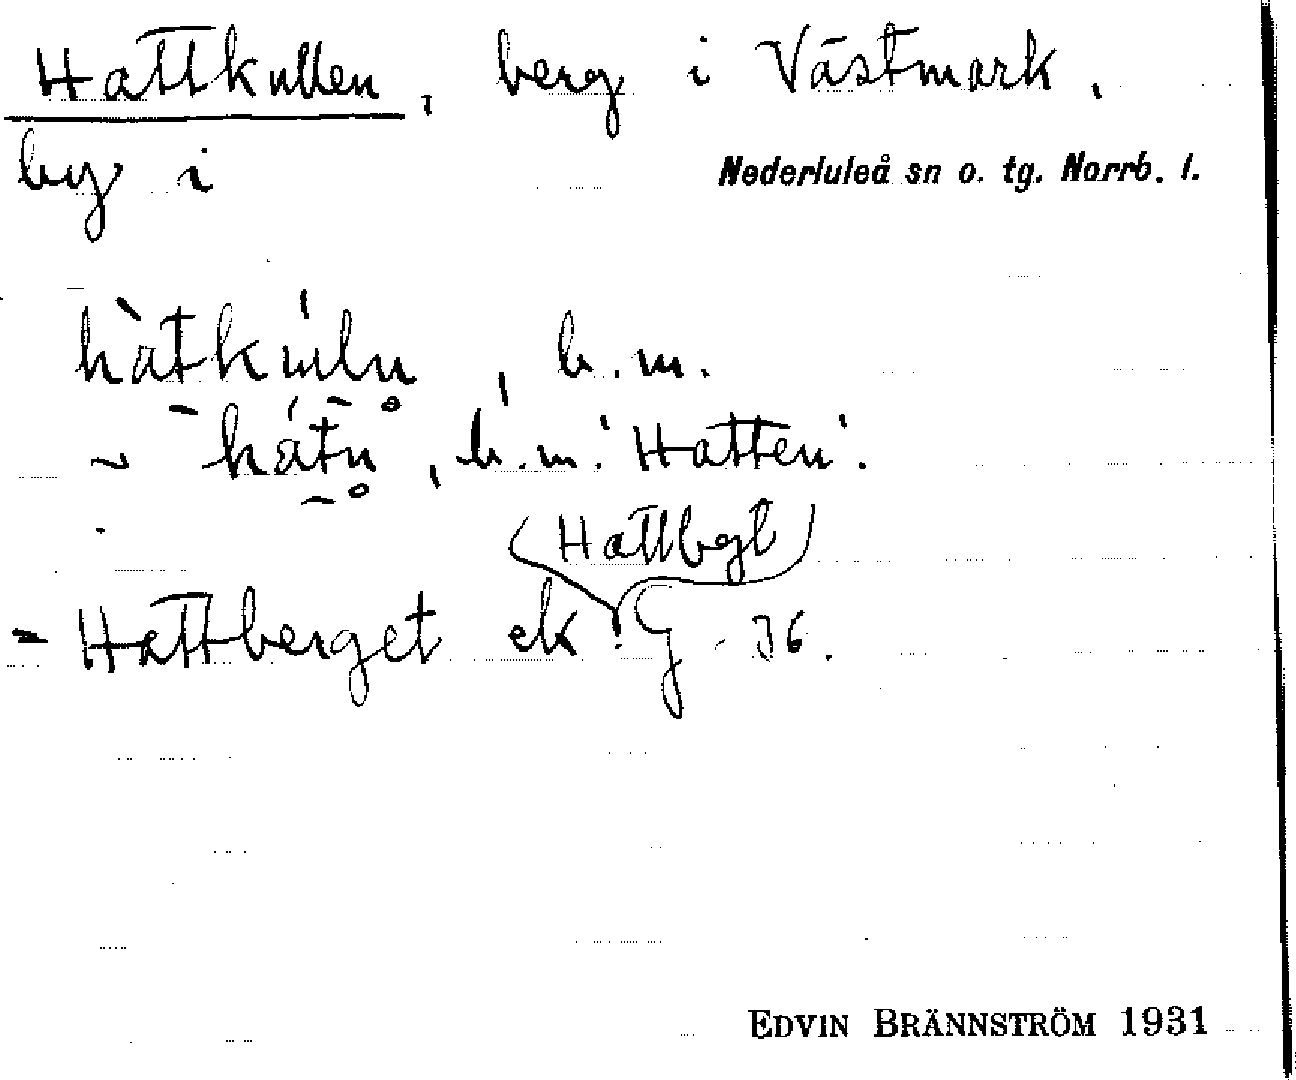 Hattkullen, berg i Västmark,
by i Nederluleå sn o. tg. Norrb. l.
b.m.
~ hátn̥, b.m. 'Hatten'.
(Hattbgt)
= Hattberget ek G - 36.
EDVIN BRÄNNSTRÖM 1931